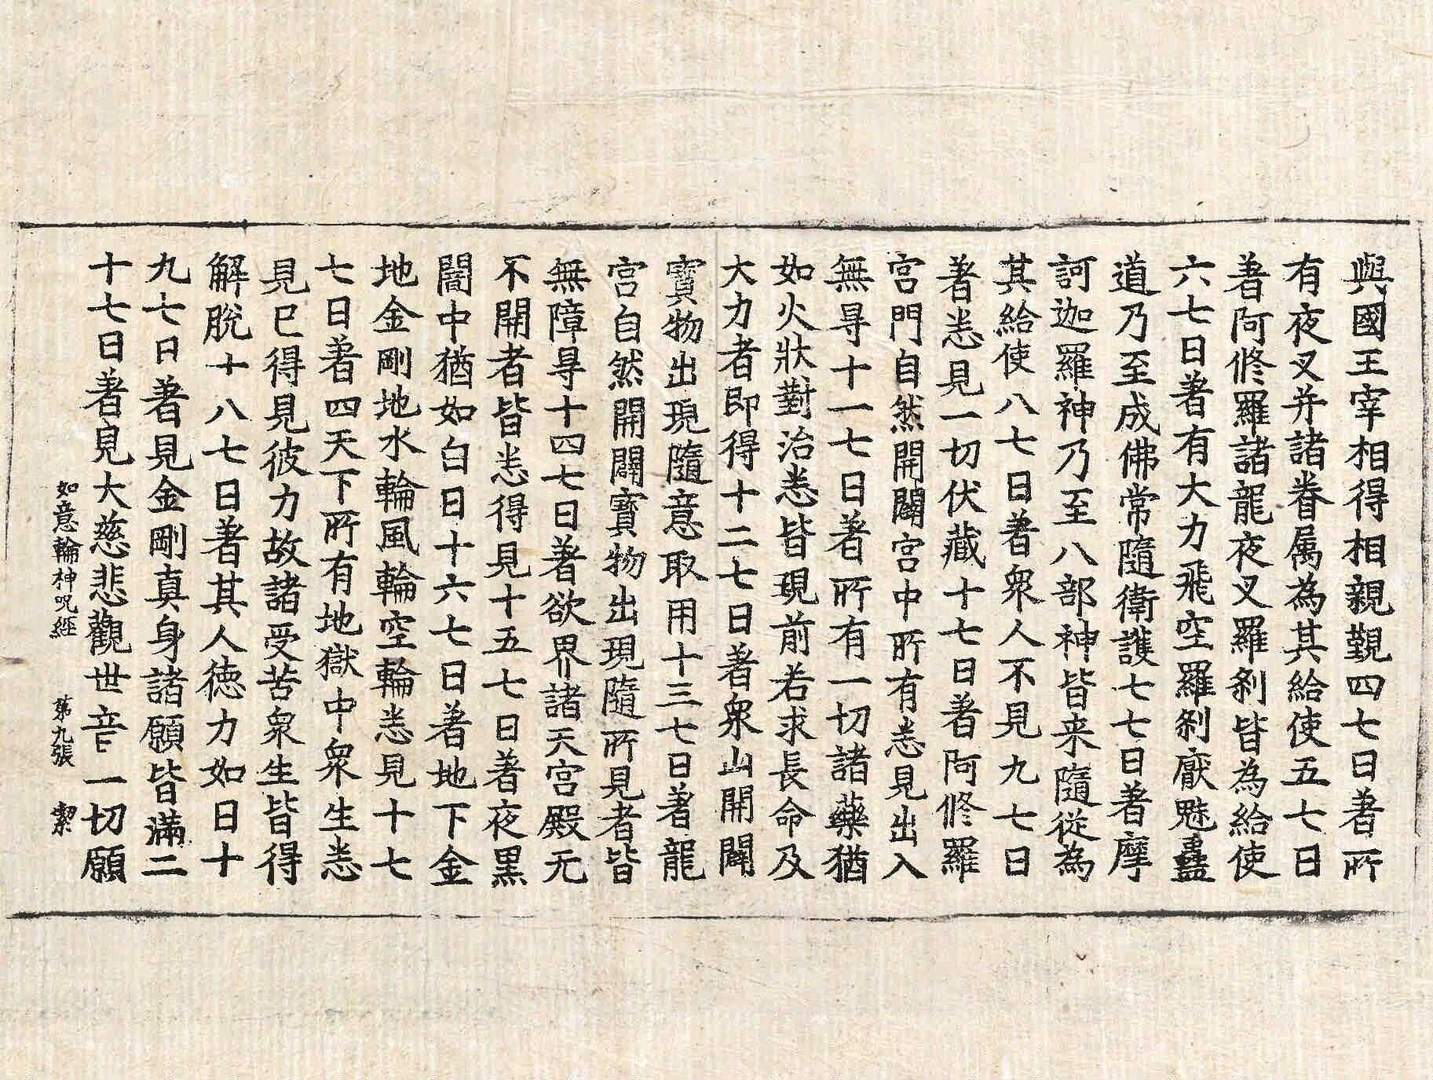 與國王宰相得相親覲四七日著所
有夜叉并諸眷属為其給使五七日
著阿修羅諸龍夜叉羅刹皆為給使
六七日著有大力飛空羅刹厭魅蠱
道乃至成佛常隨衛護七七日著摩
訶迦羅神乃至八部神皆来隨從為
其給使八七日著衆人不見九七日
著悉見一切伏藏十七日著阿修羅
宮門自然開闢宮中所有悉見出入
無㝵十一七日著所有一切諸藥猶
如火狀對治悉皆現前若求長命及
大力者即得十二七日著衆山開闢
寶物出現隨意取用十三七日著龍
宮自然開闢寶物出現隨所見者皆
無障㝵十四七日著欲界諸天宮殿无
不開者皆悉得見十五七日著夜黑
闇中猶如白日十六七日著地下金
地金剛地水輪風輪空輪悉見十七
七日著四天下所有地獄中衆生悉
見已得見彼力故諸受苦衆生皆得
解脫十八七日著其人徳力如日十
九七日著見金剛真身諸願皆滿二
十七日著見大慈悲觀世音一切願
如意輪神呪經 第九張 潔